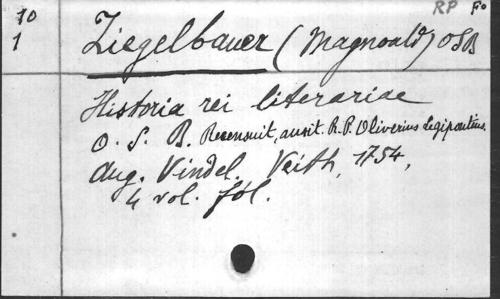 70
1
RP Fo
Ziegelbauer (Magnoald) OSB
Historia rei literariae
O. S. B. Recensuit, auxit. R.P. Oliverius Legipontius.
Aug. Vindel. Veith, 1754,
4 vol. fol.